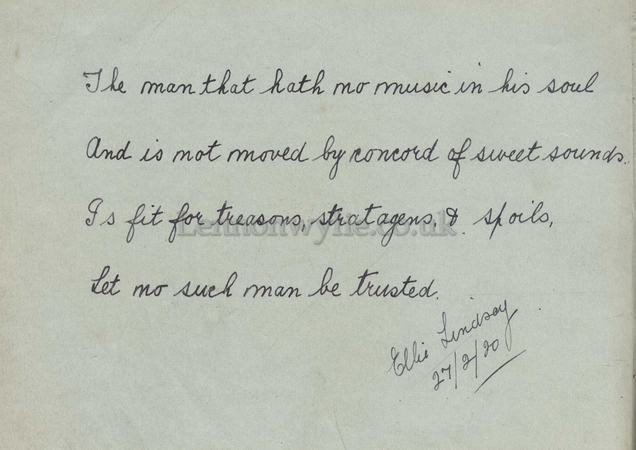 The man that hath no music in his soul
And is not moved by concord of sweet sounds.
Is fit for treasons, stratagens, & spoils,
Lennonwylie.co.uk
Let no such man be trusted.
Ellie Lindsay
27/2/20